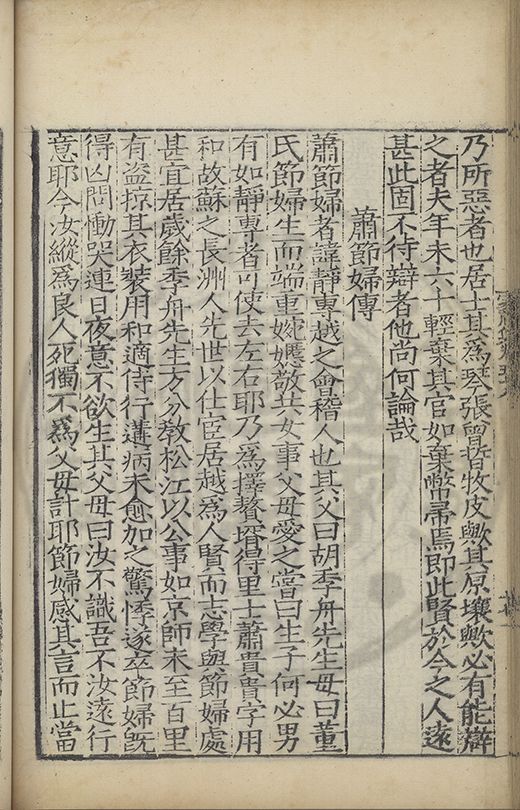 乃所惡者也居士其爲琴張曾晳牧皮歟其原壤歟必有能辯
之者夫年未六十輕棄其官如棄幣帚焉即此賢於今之人遠
甚此固不待辯者他尚何論哉
蕭節婦傳
蕭節婦者諱靜專越之會稽人也其父曰胡季舟先生母曰董
氏節婦生而端重婉嫕敬共女事父母愛之嘗曰生子何必男
有如靜專者可使去左右耶乃爲擇贅壻得里士蕭貴貴字用
和故蘇之長洲人先世以仕宦居越爲人賢而志學與節婦處
甚宜居歲餘季舟先生方分教松江以公事如京師未至百里
有盜掠其衣裝用和適侍行遘病未愈加之驚悸遂卒節婦旣
得凶問慟哭連日夜意不欲生其父母曰汝不識吾不汝遠行
意耶今汝縱爲良人死獨不爲父母計耶節婦感其言而止當